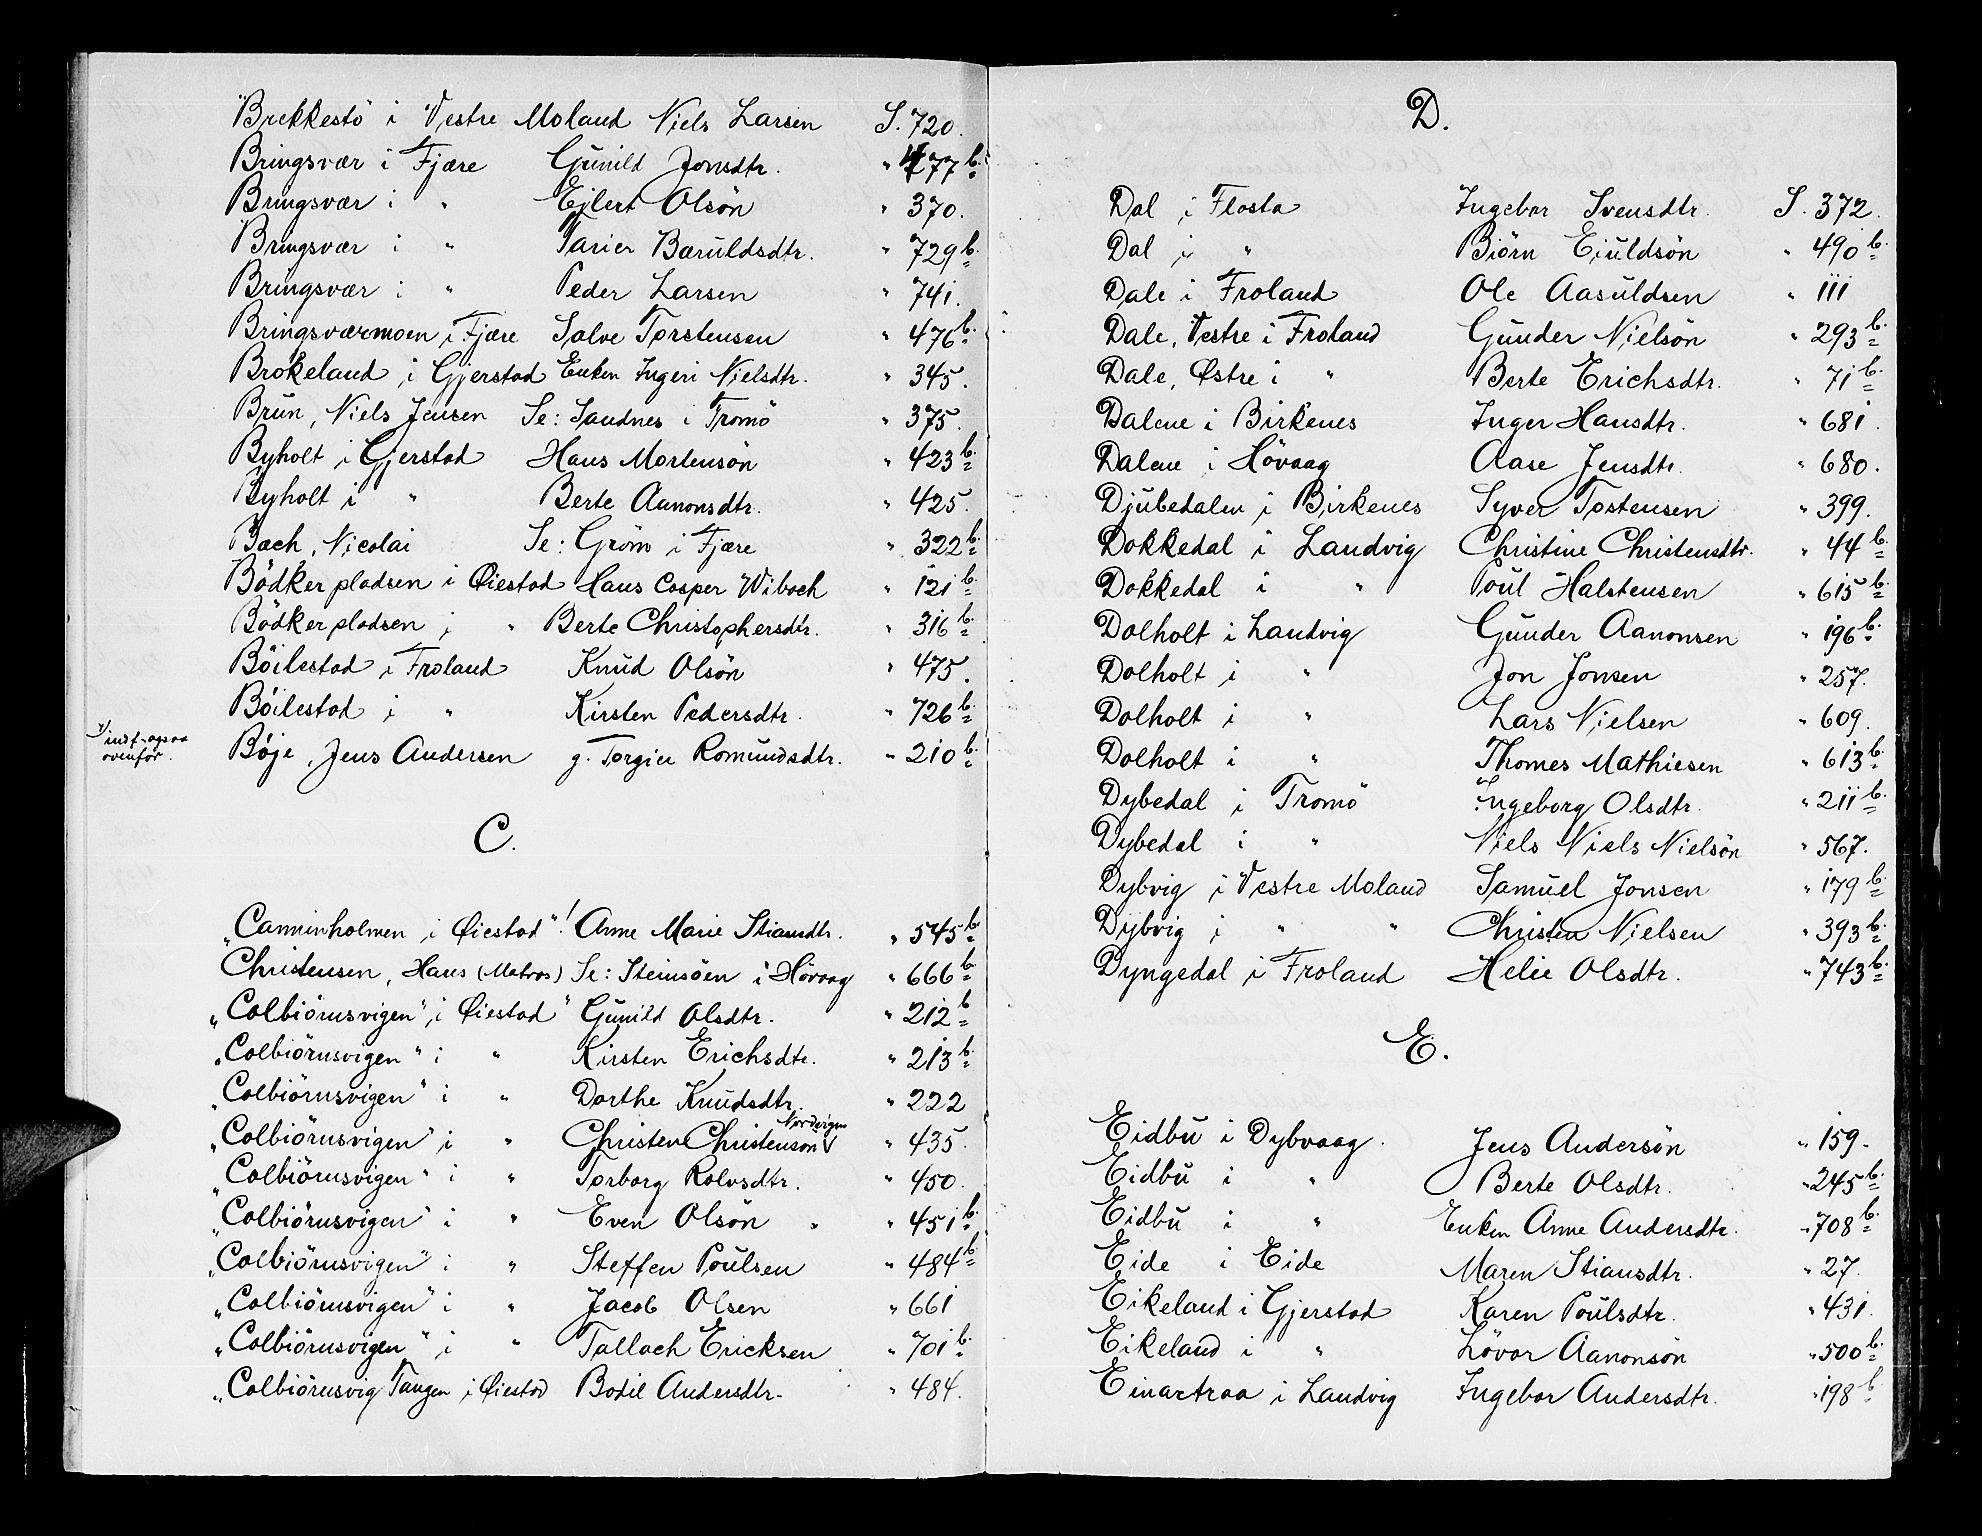 Brekkestö i Vestre Moland Niels Larsen S. 720.
Bringsvær i Fjære Gunild Jonsdtr. " 477 b.
Bringsvær i " Ejlert Olsön " 370.
Bringsvær i " Tarier Baruldsdtr. " 729 b.
Bringsvær i " Peder Larsen " 741.
Bringsværmoen i Fjære Salve Torstensen " 476 b.
Brokeland i Gjerstad Enken Ingeri Nielsdtr. " 345.
Brun, Niels Jensen Se: Sandnes i Tromö " 375.
Byholt i Gjerstad Hans Mortensön " 423 b.
Byholt i " Berte Aanonsdtr. " 425.
Bæch, Nicolai Se: Gröm i Fjære " 322 b.
Bödkerpladsen i Øiestad Hans Casper Wibach " 121 b.
Bödkerpladsen i " Berte Christophersdtr. " 316 b.
Böilestad i Froland Knud Olsön " 475.
Böilestad i " Kirsten Pedersdtr. " 726 b.
indf. ogsaa
ovenfor.
Böje, Jens Andersen g. Torgier Romundsdtr. " 210 b.
C.
"Canninholmen i Øiestad"! Anne Marie Stiansdtr. " 545 b.
Christensen, Hans (Matros) Se: Steinsöen i Hövaag " 666 b.
"Colbiörnsvigen" i Øiestad" Gunild Olsdtr. " 212 b
"Colbiörnsvigen" i " Kirsten Erichsdtr. " 213 b.
"Colbiörnsvigen" i " Dorthe Knudsdtr. " 222
Nordvigen
"Colbiörnsvigen" i " Christen Christensön V " 435.
"Colbiörnsvigen" i " Torborg Rolvsdtr. " 450.
"Colbiörnsvigen" i " Even Olsön " " 451 b.
"Colbiörnsvigen" i " Steffen Poulsen " 484 b.
"Colbiörnsvigen" i " Jacob Olsen " 661
"Colbiörnsvigen" i " Tallach Ericksen " 701 b.
"Colbiörnsvig Tangen i Øiestad Bodil Andersdtr. " 484.
D.
Dal i Flosta Ingebor Svensdtr. S. 372.
Dal i " Biörn Eiuldsön " 490 b.
Dale i Froland Ole Aasuldsen " 111
Dale, Vestre i Froland Gunder Nielsön " 293 b.
Dale, Østre i " Berte Erichsdtr. " 71 b.
Dalene i Birkenes Inger Hansdtr. " 681.
Dalene i Hövaag Aase Jensdtr. " 680.
Djubedalen i Birkenes Syver Tostensen " 399.
Dokkedal i Landvig Christine Christensdtr. " 44 b.
Dokkedal i " Poul Halstensen " 615 b.
Dolholt i Landvig Gunder Aanonsen " 196 b.
Dolholt i " Jon Jonsen " 257.
Dolholt i " Lars Nielsen " 609.
Dolholt i " Thomes Mathiesen " 613 b.
Dybedal i Tromö Ingeborg Olsdtr. " 211 b.
Dybedal i " Niels Niels Nielsön " 567.
Dybvig i Vestre Moland Samuel Jonsen " 179 b.
Dybvig i " " Christen Nielsen " 393 b.
Dyngedal i Froland Helie Olsdtr. " 743 b.
E.
Eidbu i Dybvaag. Jens Andersön " 159.
Eidbu i " Berte Olsdtr. " 245 b.
Eidbu i " Enken Anne Andersdtr. " 708 b.
Eide i Eide Maren Stiansdtr. " 27.
Eikeland i Gjerstad Karen Poulsdtr. " 431.
Eikeland i " Lövar Aanonsön " 500 b.
Einartraa i Landvig Ingebor Andersdtr. " 198 b